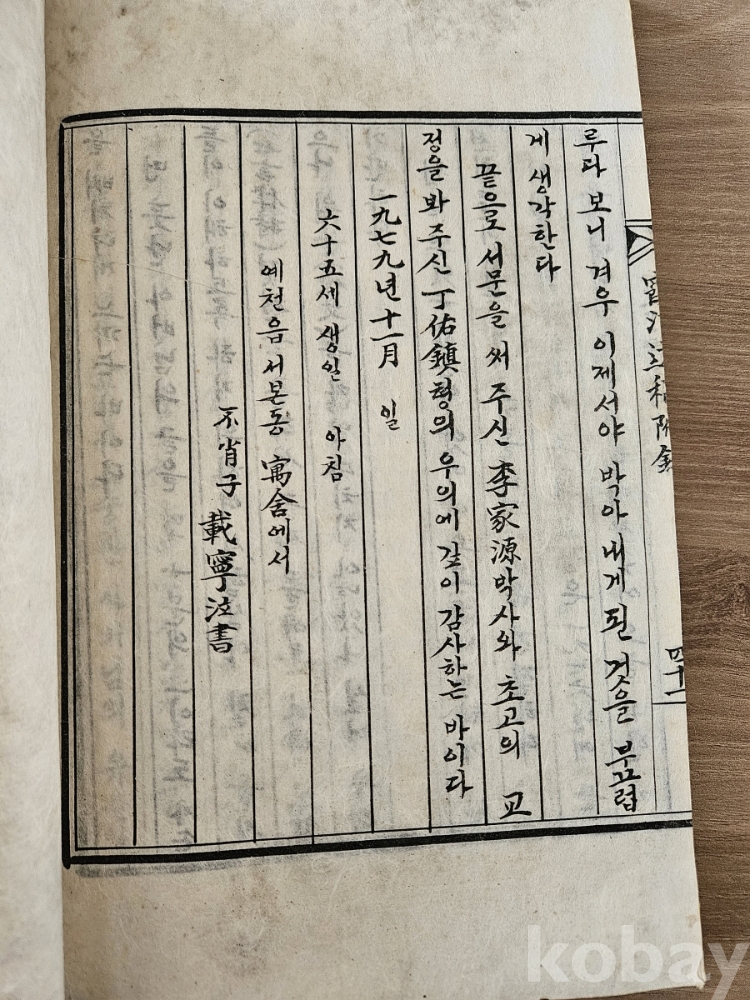 루다 보니 겨우 이제서야 박아 내게 된 것을 부끄럽
게 생각한다
끝으로 서문을 써 주신 李家源박사와 초고의 교
정을 봐 주신 丁佑鎭형의 우의에 깊이 감사하는 바이다
一九七九년 十一月 일
六十五세 생일 아침
예천읍 서본동 寓舍에서
不肖子 載寧泣書
四十一
kobay